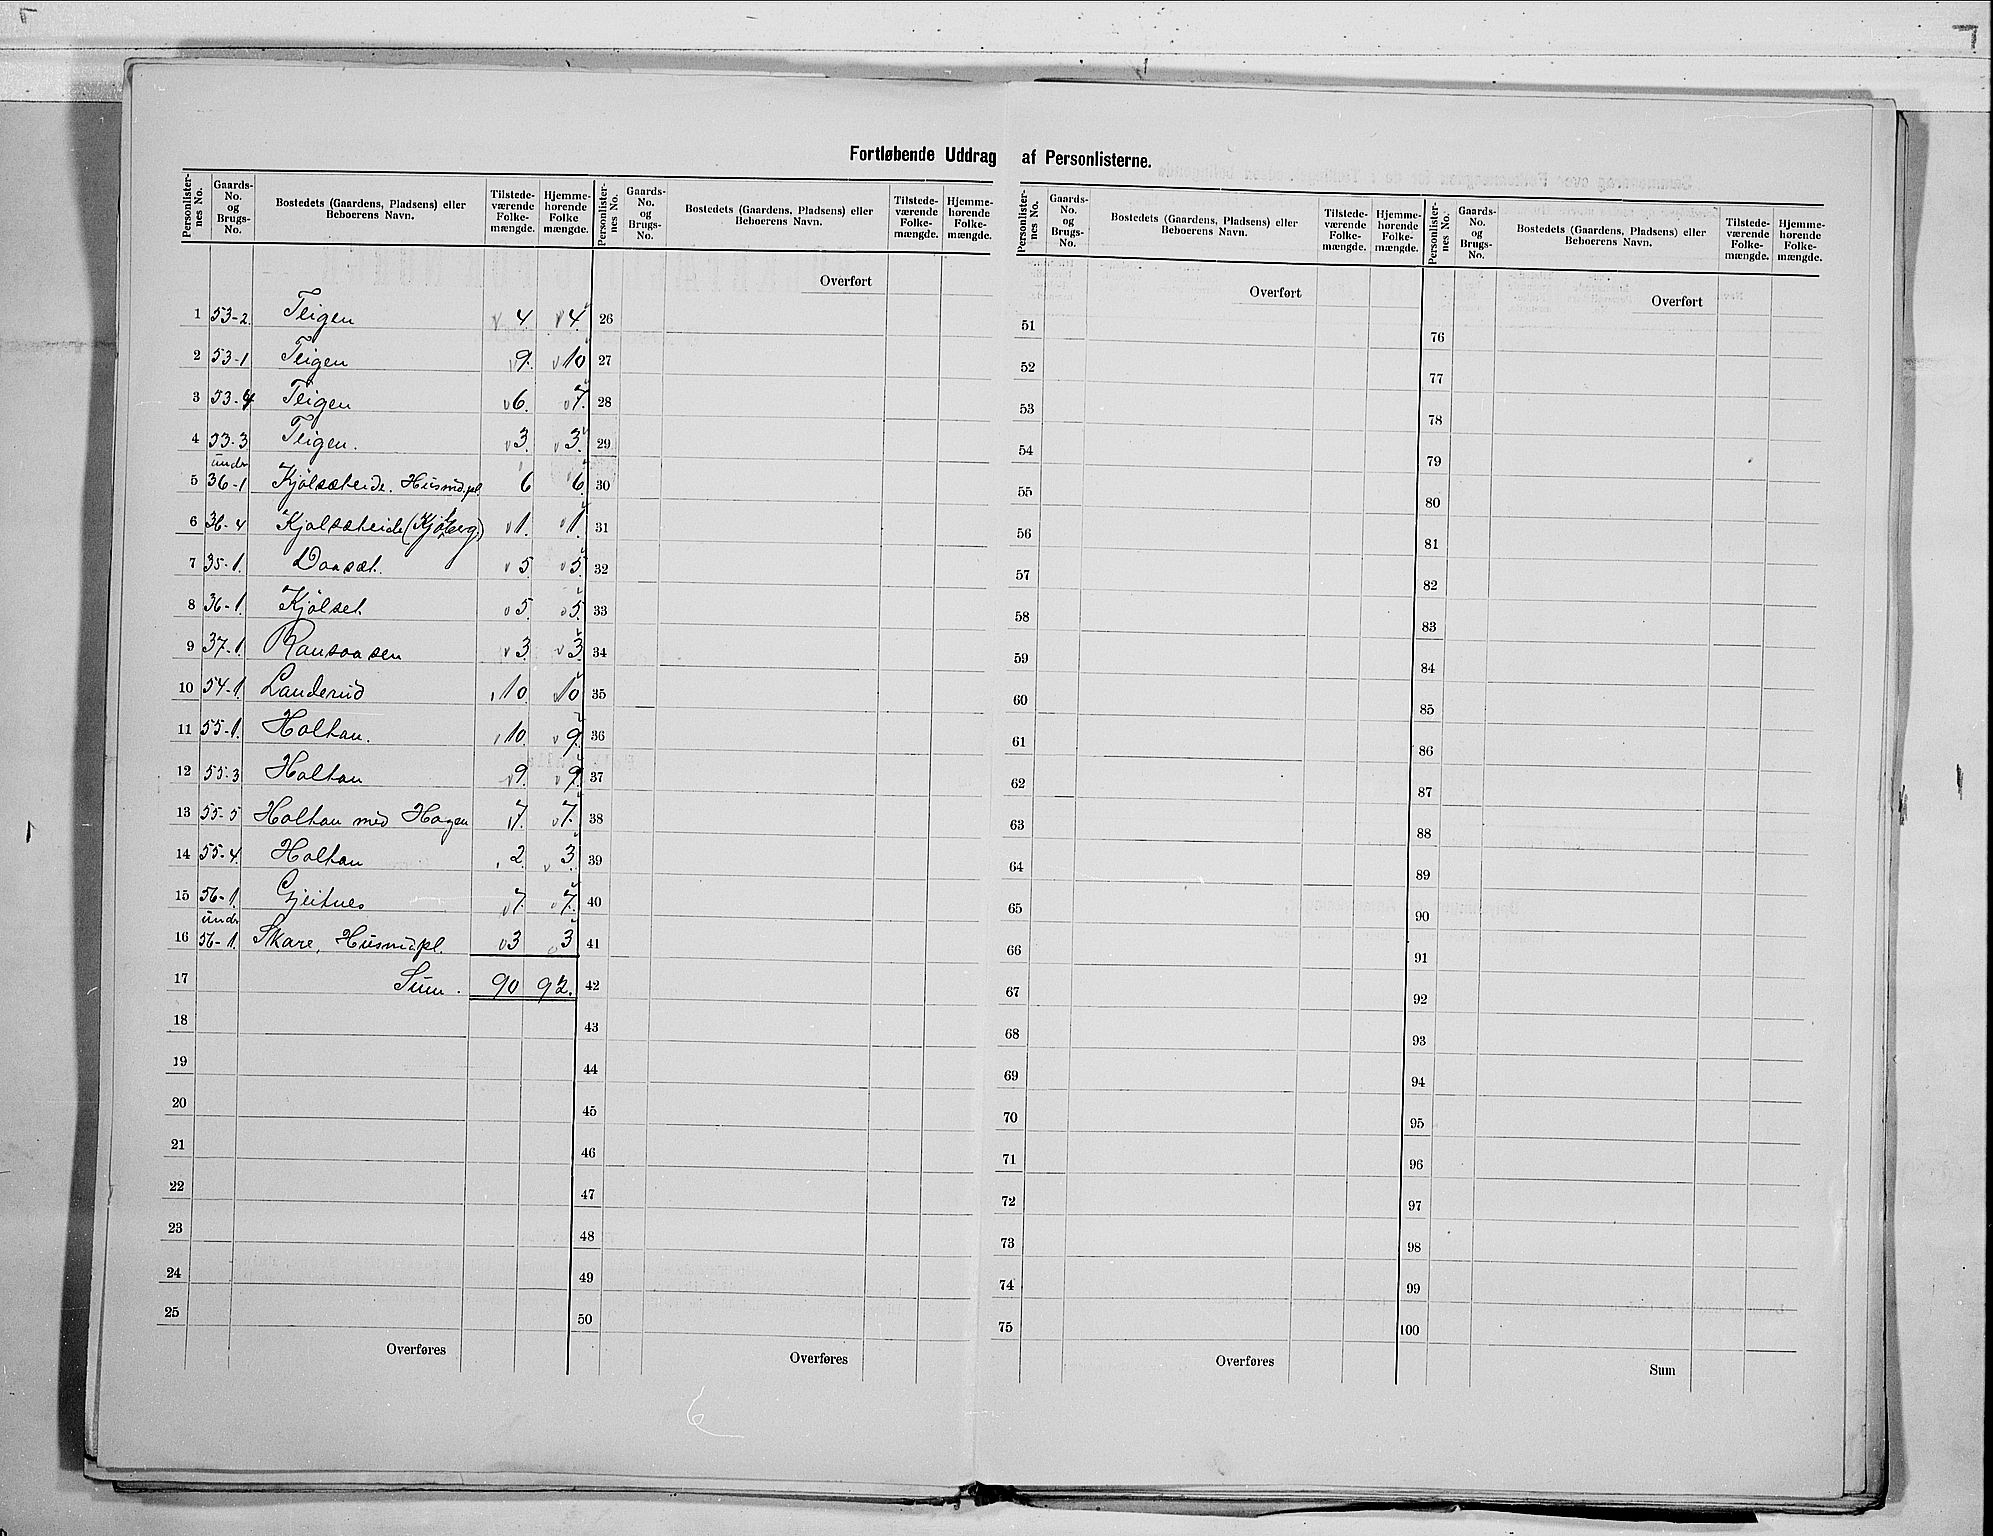 Fortløbende Uddrag af Personlisterne.
Personlister-nes No. Gaards-No. og Brugs-No. Bostedets (Gaardens, Pladsens) eller Beboerens Navn. Tilstede-værende Folke-mængde. Hjemme-hørende Folke mængde.
1 53-2. Teigen 4 4.
2 53-1 Teigen 9. 10
3 53-4 Teigen 6. 7.
4 53-3 Teigen. 3. 3.
5 under 36-1 Kjølsæteide. Husmd.pl. 6 6.
6 36-4 Kjølsæteide (Kjølberg) 1. 1.
7 35-1. Daasæt. 5 5.
8 36-1. Kjølset 5 5.
9 37-1. Ransaasen 3 3.
10 54-1. Landerud 10 10
11 55-1. Holtan. 10. 9.
12 55-3 Holtan 9. 9.
13 55-5 Holtan med Hagen 7. 7.
14 55-4. Holtan 2. 3.
15 56-1. Gjeitnes 7. 7.
16 under 56-1. Skare, Husmd.pl. 3 3
17 Sum. 90 92.
18
19
20
21
22
23
24
25
Overføres
Personlister-nes No. Gaards-No. og Brugs-No. Bostedets (Gaardens, Pladsens) eller Beboerens Navn. Tilstede-værende Folke-mængde. Hjemme-hørende Folke-mængde.
Overført
26
27
28
29
30
31
32
33
34
35
36
37
38
39
40
41
42
43
44
45
46
47
48
49
50
Overføres
6
Personlister-nes No. Gaards-No. og Brugs-No. Bostedets (Gaardens, Pladsens) eller Beboerens Navn. Tilstede-værende Folke-mængde. Hjemme-hørende Folke-mængde.
Overført
51
52
53
54
55
56
57
58
59
60
61
62
63
64
65
66
67
68
69
70
71
72
73
74
75
Overføres
Personlister-nes No. Gaards-No. og Brugs-No. Bostedets (Gaardens, Pladsens) eller Beboerens Navn. Tilstede-værende Folke-mængde. Hjemme-hørende Folke-mængde.
Overført
76
77
78
79
80
81
82
83
84
85
86
87
88
89
90
91
92
93
94
95
96
97
98
99
100
Sum